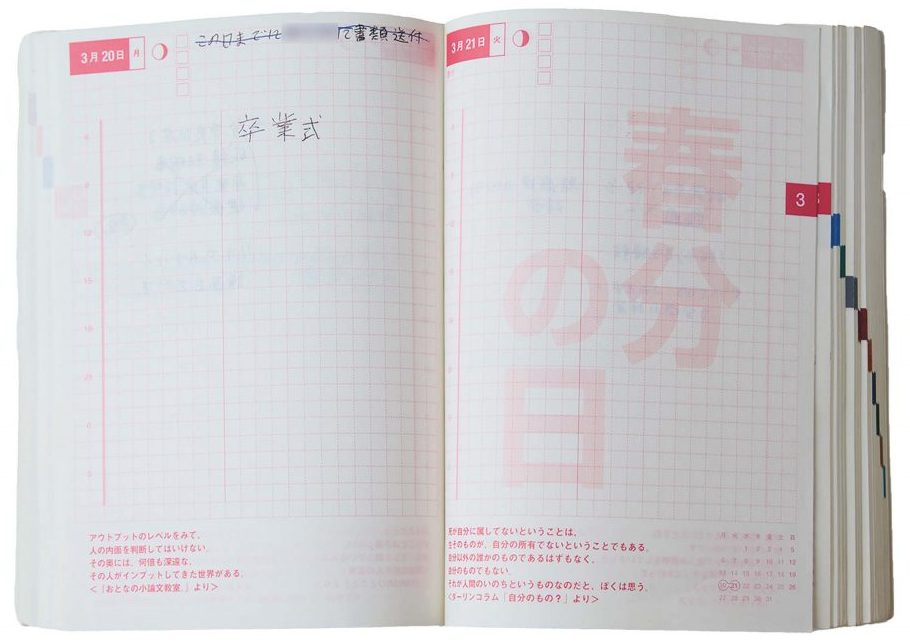 3月20日 月
この日までに
て書類送付
卒業式
アウトプットのレベルをみて、
人の内面を判断してはいけない。
その奥には、何倍も深遠な、
その人がインプットしてきた世界がある。
<「おとなの小論文教室。」より>
3月21日 火
春分
の日
3
死が自分に属してないということは、
生そのものが、自分の所有でないということでもある。
自分以外の誰かのものであるはずもなく、
自分のものでもない。
それが人間のいのちというものなのだと、ぼくは思う。
<ダーリンコラム「自分のもの?」より>
月 火 水 木 金 土 日
1 2 3 4 5
6 7 8 9 10 11 12
13 14 15 16 17 18 19
20 21 22 23 24 25 26
27 28 29 30 31